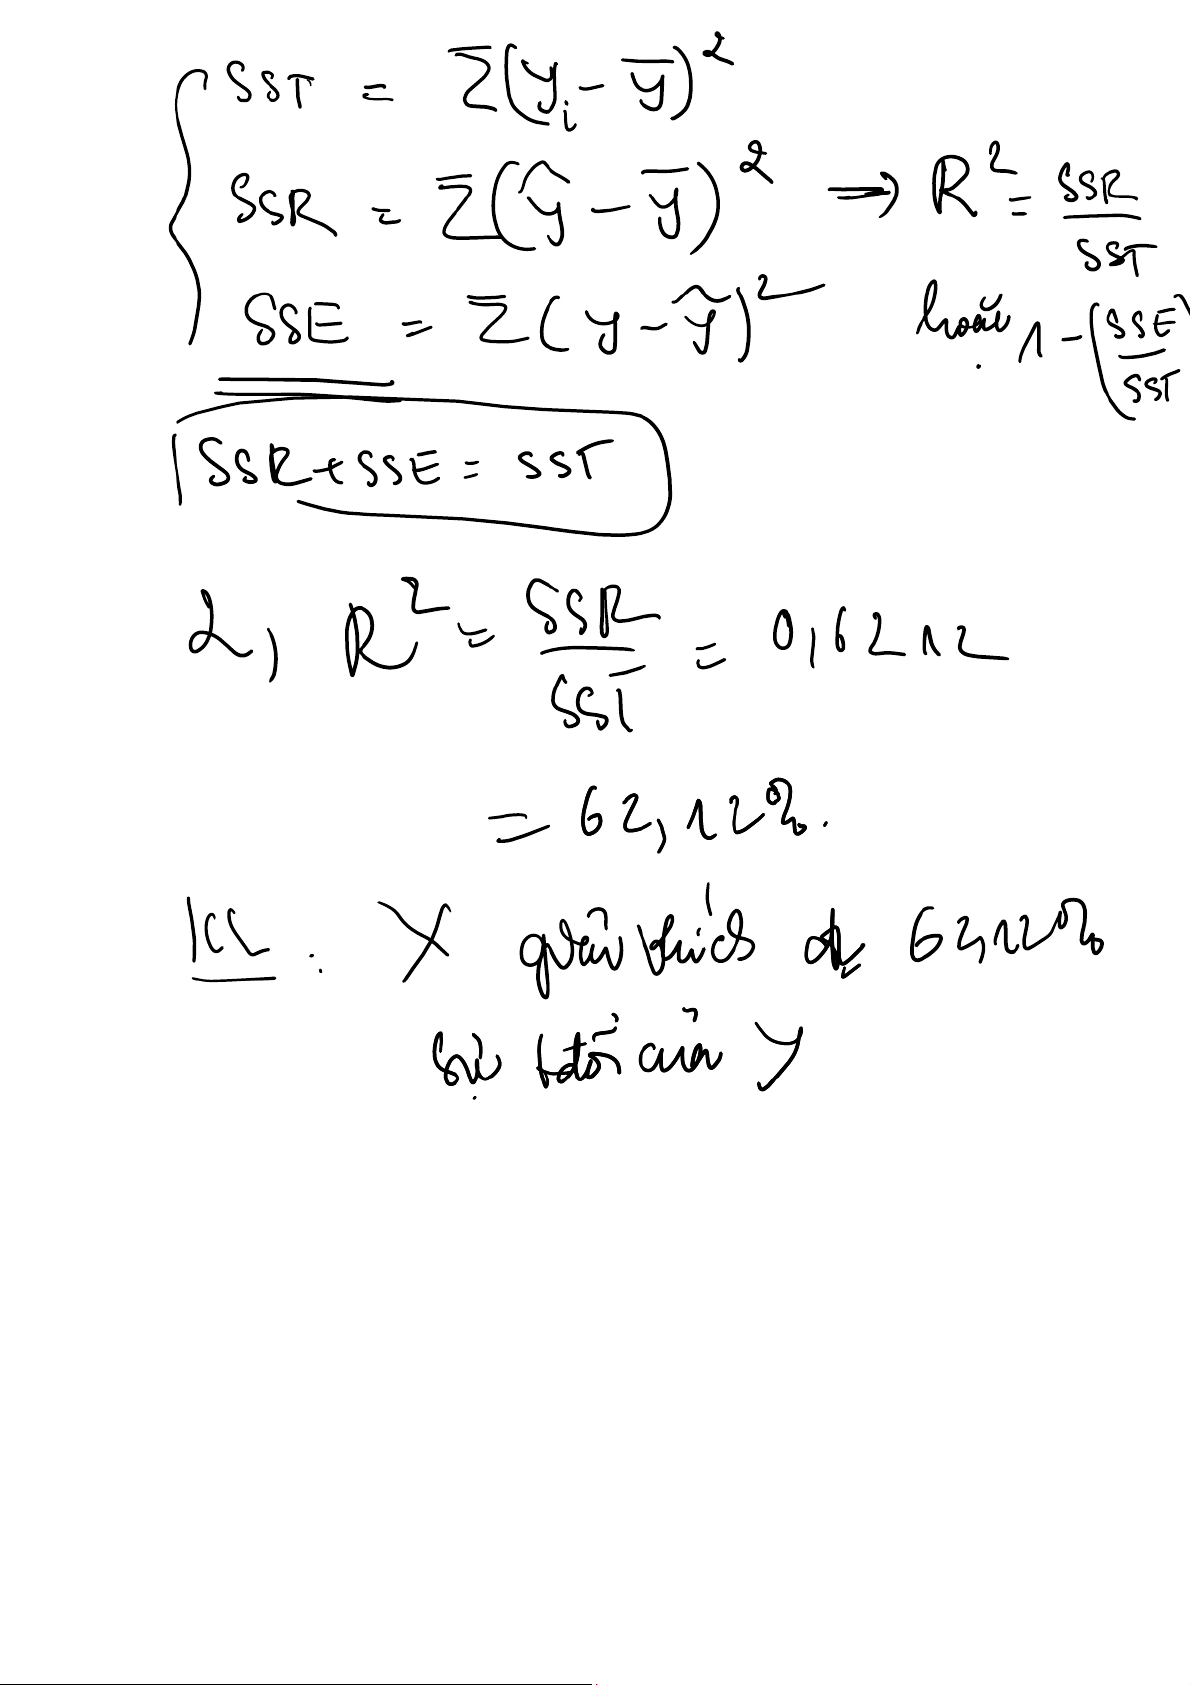 SST = Σ(yᵢ - ȳ)²
SSR = Σ(ŷ - ȳ)² ⟹ R² = SSR/SST
SSE = Σ(y - ŷ)² hoặc 1 - (SSE/SST)
SSR + SSE = SST
2, R² = SSR/SST = 0,6212
= 62,12%.
KL: X giải thích đc 62,12%
sự tđổi của Y